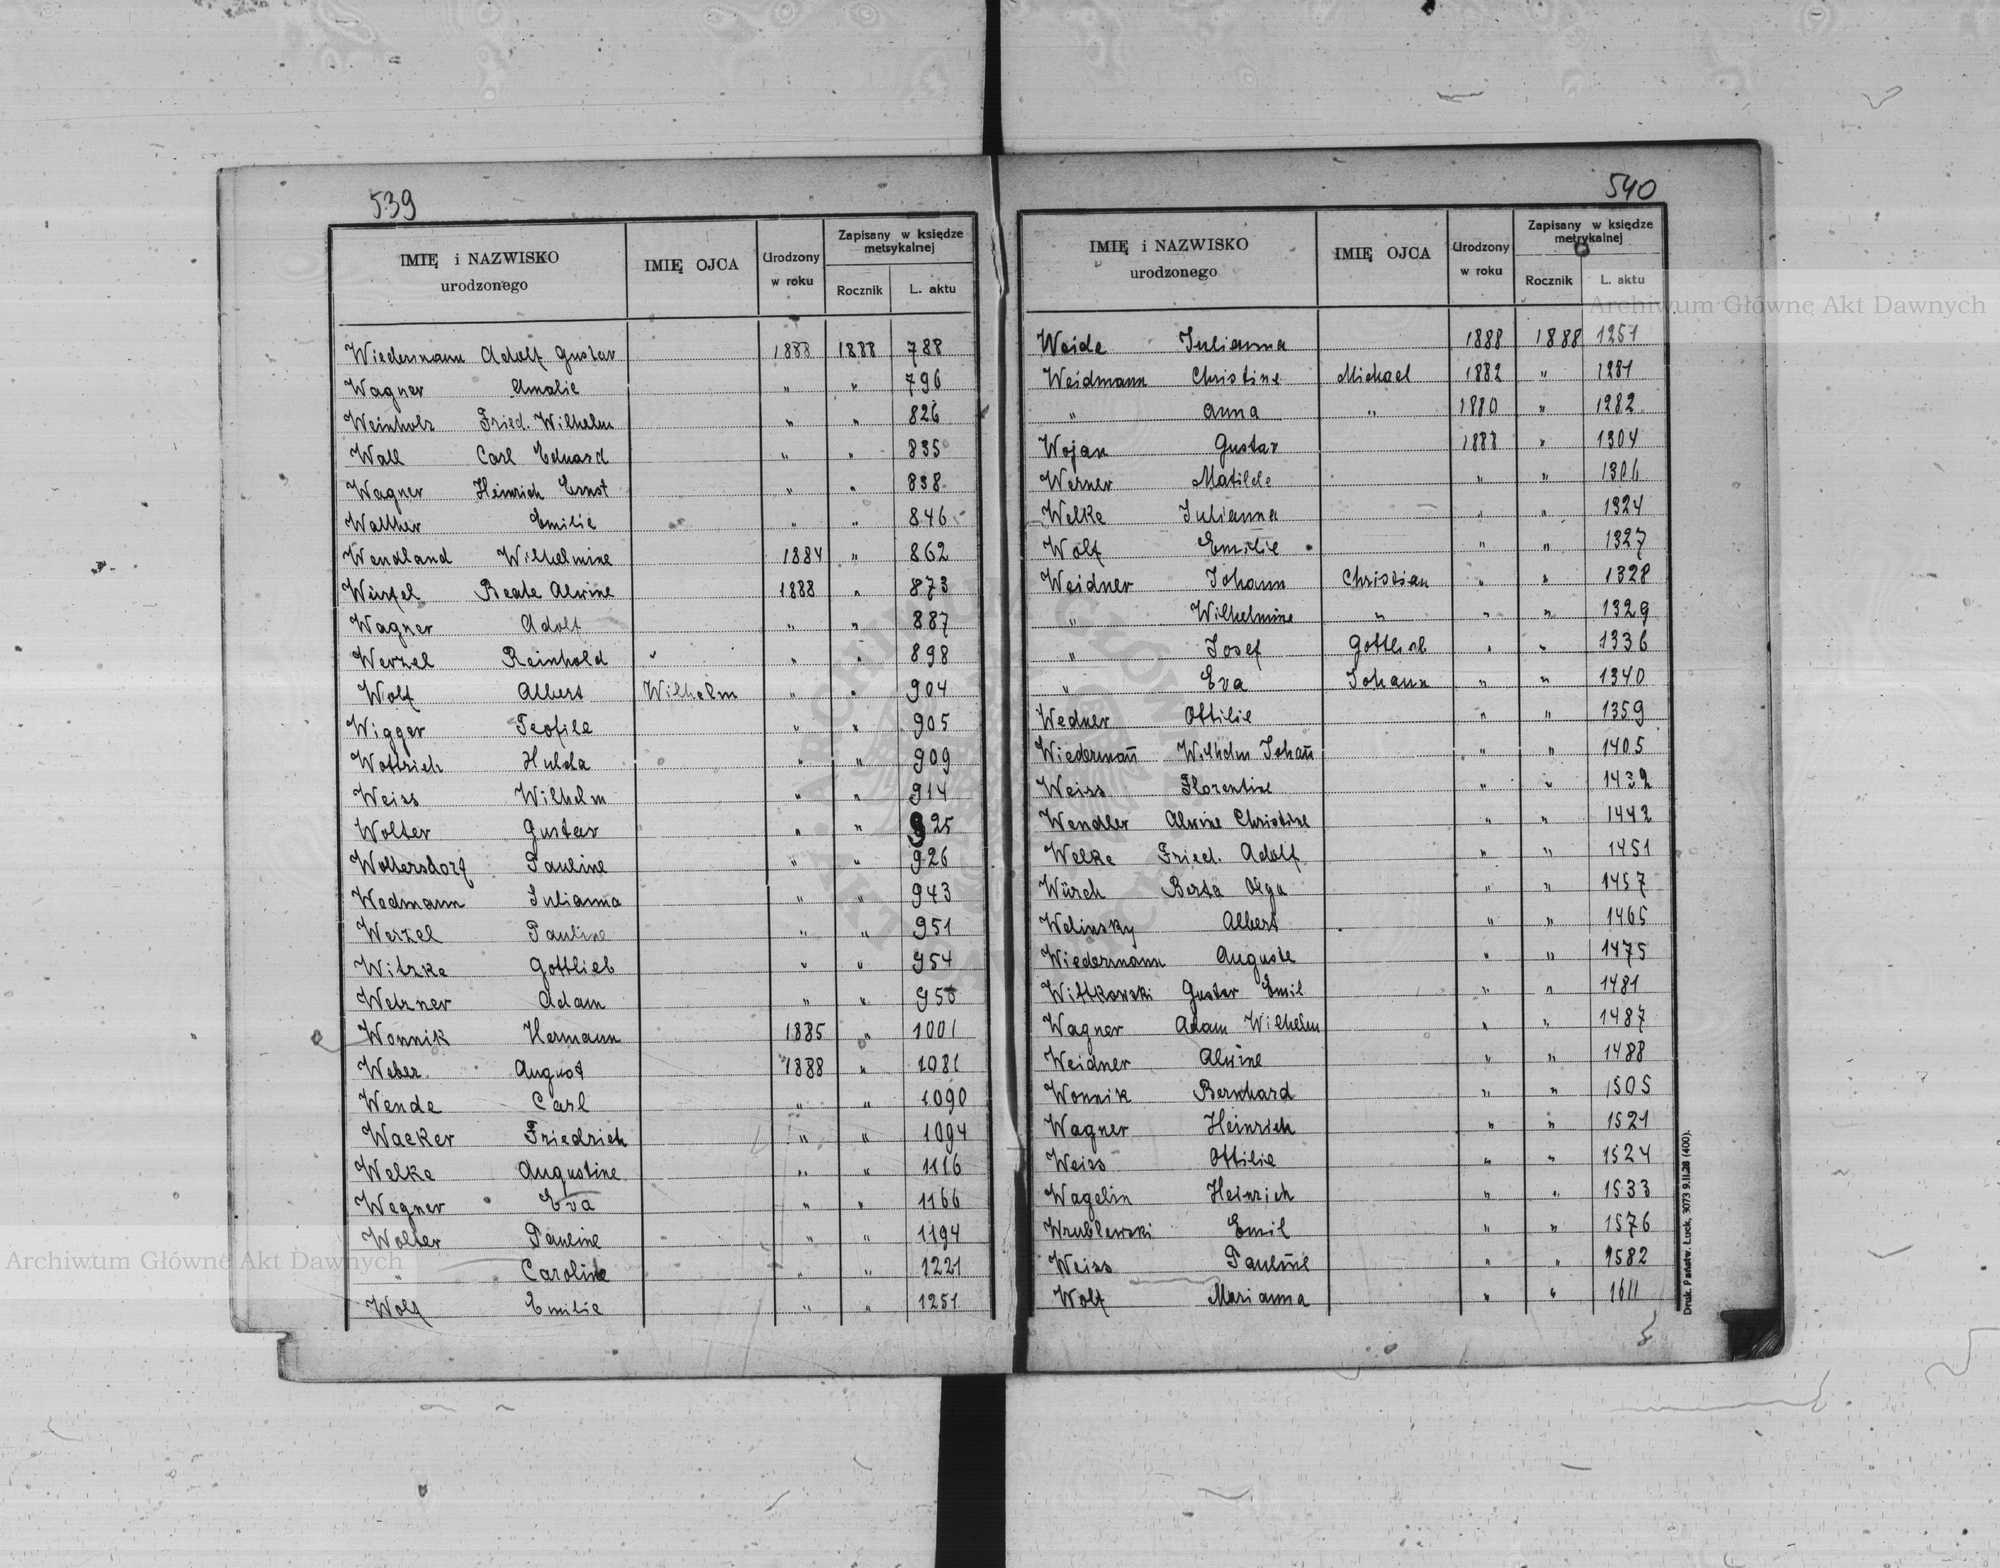 539
IMIĘ i NAZWISKO urodzonego IMIĘ OJCA Urodzony w roku Zapisany w księdze metrykalnej Rocznik L. aktu
Wiedermann Adolf Gustav 1888 1888 788
Wagner Amalie " " 796
Weinholz Fried. Wilhelm " " 826
Wall Carl Eduard " " 835
Wagner Heinrich Ernst " " 838
Walther Emilie " " 846
Wendland Wilhelmine 1884 " 862
Würfel Beate Alwine 1888 " 873
Wagner Adolf " " 887
Werzel Reinhold " " 898
Wolf Albert Wilhelm " " 904
Wigger Teofile " " 905
Wottrich Hulda " " 909
Weiss Wilhelm " " 914
Wolter Gustav " " 925
Woltersdorf Pauline " " 926
Wedmann Julianna " " 943
Werzel Pauline " " 951
Witzke Gottlieb " " 954
Welzner Adam " "
Wonnik Hermann 1885 " 1001
Weber August 1888 " 1081
Wende Carl " " 1090
Wacker Friedrich " " 1094
Welke Augustine " " 1116
Wegner Eva " " 1166
Wolter Pauline " " 1194
" Caroline " " 1221
Wolf Emilie " " 1251
540
IMIĘ i NAZWISKO urodzonego IMIĘ OJCA Urodzony w roku Zapisany w księdze metrykalnej Rocznik L. aktu
Weide Julianna 1888 1888 1257
Weidmann Christine Michael 1882 " 1281
" Anna " 1880 " 1282
Wojan Gustav 1888 " 1304
Werner Matilde " " 1306
Welke Julianna " " 1324
Wolf Emilie " " 1327
Weidner Johann Christian " " 1328
" Wilhelmine " " " 1329
" Josef Gottlieb " " 1336
" Eva Johann " " 1340
Wedner Ottilie " " 1359
Wiedermañ Wilhelm Johañ " " 1405
Weiss Florentine " " 1432
Wendler Alwine Christine " " 1442
Welke Fried. Adolf " " 1451
Würch Berta Olga " " 1457
Welinsky Albert " " 1465
Wiedermann Auguste " " 1475
Wittkowski Gustav Emil " " 1481
Wagner Adam Wilhelm " " 1487
Weidner Alwine " " 1488
Wonnik Bernhard " " 1505
Wagner Heinrich " " 1521
Weiss Ottilie " " 1524
Wagelin Heinrich " " 1533
Wrublewski Emil " " 1576
Weiss Pauline " " 1582
Wolf Marianna " " 1611
Druk. Państw. Łuck, 3073 9.II.28 (400).
Archiwum Główne Akt Dawnych
Archiwum Główne Akt Dawnych